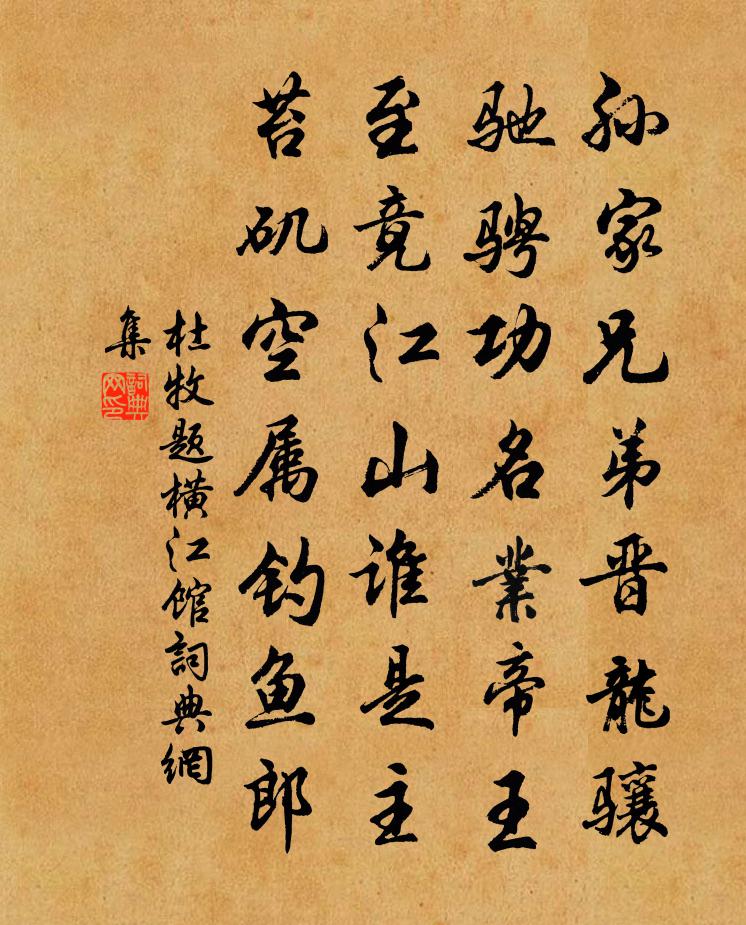 孙家兄弟晋龍骧
驰骋功名業帝王
至竟江山谁是主
苔矶空属钓鱼郎
杜牧题横江馆詞典網
集
詞典
网印